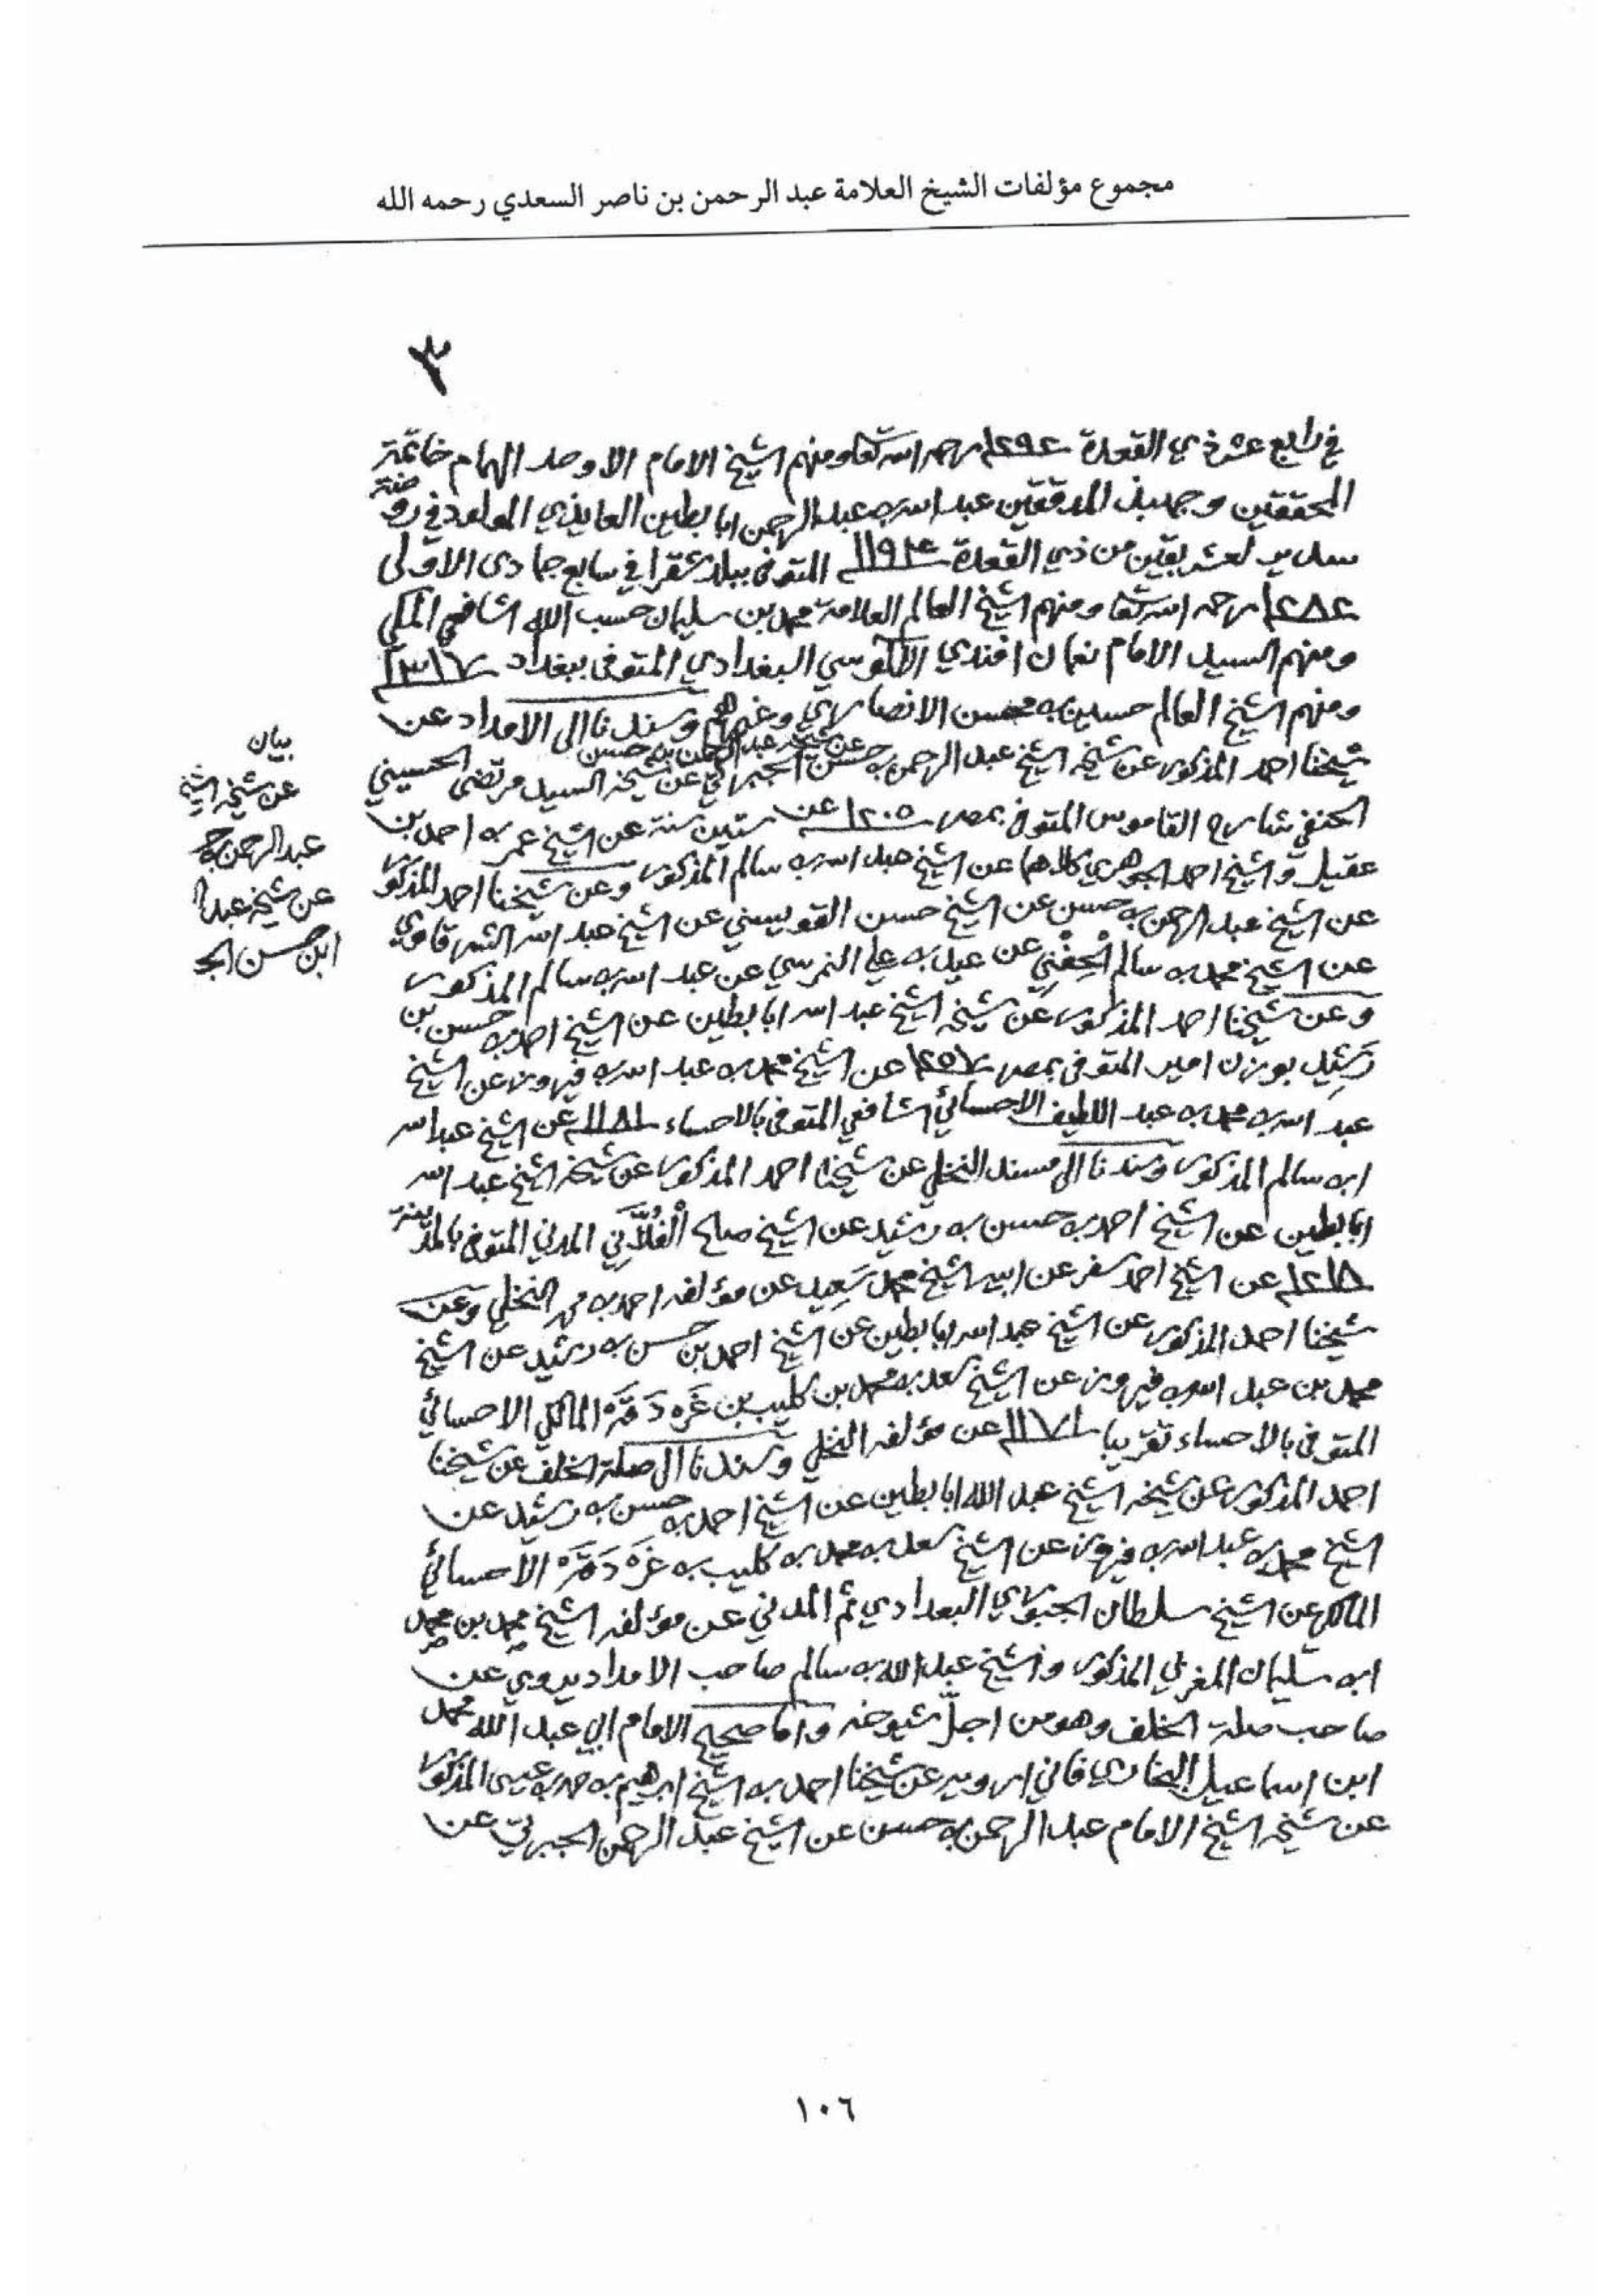 مجموع مؤلفات الشيخ العلامة عبد الرحمن بن ناصر السعدي رحمه الله
٣
في رابع عشر ذي القعدة ١٢٩٤ رحمه الله تعا ومنهم الشيخ الامام الاوحد الهمام خاتمة
المحققين وجهبذ المدققين عبد الله بن عبد الرحمن ابا بطين العايذي المولود في روضة
سدير لعشر بقين من ذي القعدة ١١٩٤ المتوفى ببلد شقرا في سابع جمادى الاولى
١٢٨٢ رحمه الله تعا ومنهم الشيخ العالم العلامة محمد بن سليمان حسب الله الشافعي المكي
ومنهم السيد الامام نعمان افندي الآلوسي البغدادي المتوفى ببغداد ١٣١٧
ومنهم الشيخ العالم حسين بن محسن الانصاري وغيرهم وسندنا الى الامداد عن
شيخنا احمد المذكور عن شيخه الشيخ عبد الرحمن بن حسن عن شيخه عبد الرحمن بن حسن الجبرتي عن شيخه السيد مرتضى الحسيني
بيان
عن شيخه الشيخ
عبد الرحمن بن ح
عن شيخه عبد ا
ابن حسن الجـ
الحنفي شارح القاموس المتوفى بمصر ١٢٠٥ عن ستين سنة عن الشيخ عمر بن احمد بن
عقيل والشيخ احمد الجوهري كلاهما عن الشيخ عبد الله بن سالم المذكور وعن شيخنا احمد المذكور
عن الشيخ عبد الرحمن بن حسن عن الشيخ حسن القويسني عن الشيخ عبد الله الشرقاوي
عن الشيخ محمد بن سالم الحِفْني عن عيد بن علي النمرسي عن عبد الله بن سالم المذكور
وعن شيخنا احمد المذكور عن شيخه الشيخ عبد الله ابا بطين عن الشيخ احمد بن حسن بن
رَشِيد بوزن امير المتوفى بمصر ١٢٥٧ عن الشيخ محمد بن عبد الله بن فيروز عن الشيخ
عبد الله بن محمد بن عبد اللطيف الاحسائي الشافعي المتوفى بالاحساء ١١٨١ عن الشيخ عبد الله
ابن سالم المذكور وسندنا الى مسند النخلي عن شيخنا احمد المذكور عن شيخه الشيخ عبد الله
ابا بطين عن الشيخ احمد بن حسن بن رشيد عن الشيخ صالح الْفُلَّانِي المدني المتوفى بالمدينة
١٢١٨ عن الشيخ احمد سفر عن ابيه الشيخ محمد سَعِيد عن مؤلفه احمد بن محمد النخلي وعن
شيخنا احمد المذكور عن الشيخ عبد الله ابا بطين عن الشيخ احمد بن حسن بن رشيد عن الشيخ
محمد بن عبد الله بن فيروز عن الشيخ سعد بن محمد بن كليب بن غَرَه دَقَّه المالكي الاحسائي
المتوفى بالاحساء تقريبا ١١٧١ عن مؤلفه النخلي وسندنا الى صلة الخلف عن شيخنا
احمد المذكور عن شيخه الشيخ عبد الله ابا بطين عن الشيخ احمد بن حسن بن رشيد عن
الشيخ محمد بن عبد الله بن فيروز عن الشيخ سعد بن محمد بن كليب بن غرَه دَقَّه الاحسائي
المالكي عن الشيخ سلطان الجبوري البغدادي ثم المدني عن مؤلفه الشيخ محمد بن محمد
ابن سليمان المغربي المذكور والشيخ عبد الله بن سالم صاحب الامداد يروي عن
صاحب صلة الخلف وهو من اجلّ شيوخه واما صحيح الامام ابي عبد الله محمد
ابن اسماعيل البخاري فاني ارويه عن شيخنا احمد بن الشيخ ابرهيم بن حمد بن عيسى المذكور
عن شيخه الشيخ الامام عبد الرحمن بن حسن عن الشيخ عبد الرحمن الجبرتي عن
١٠٦